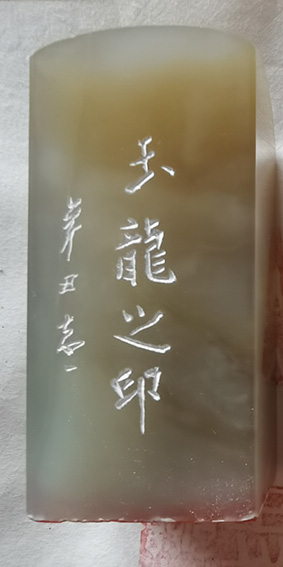 玉龍之印
辛丑